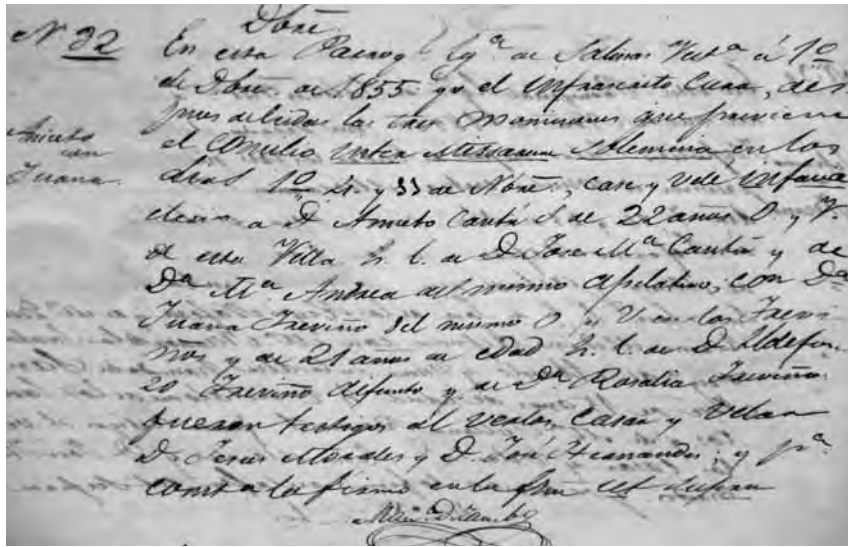 Dbre.
N 32 En esta Parroq.l Ygª de Salinas Vict.ª á 1º
de Dbre. de 1855 yo el infrascrito Cura, des
pues de leidas las tres moniciones que previene
Aniceto con Juana.
el Concilio inter Missarum Solemnia en los
dias 1º 4 y 11 de Nbre., casé y velé infacie
eclesie a D. Aniceto Cantú S. de 22 años O. y V.
de esta Villa h. l. de D. Jose Mª Cantú y de
Dª Mª Andrea del mismo apelativo, con Dª
Juana Treviño del mismo O. y V. en los Trevi
ños y de 21 años de edad h. l. de D. Ildefon
zo Treviño defunto y de Dª Rosalia Treviño
fueron testigos al verlos Casar y Velar
D. Jesus Morales y D. José Hernandes; y pª
consta lo firmo en la fha ut supra